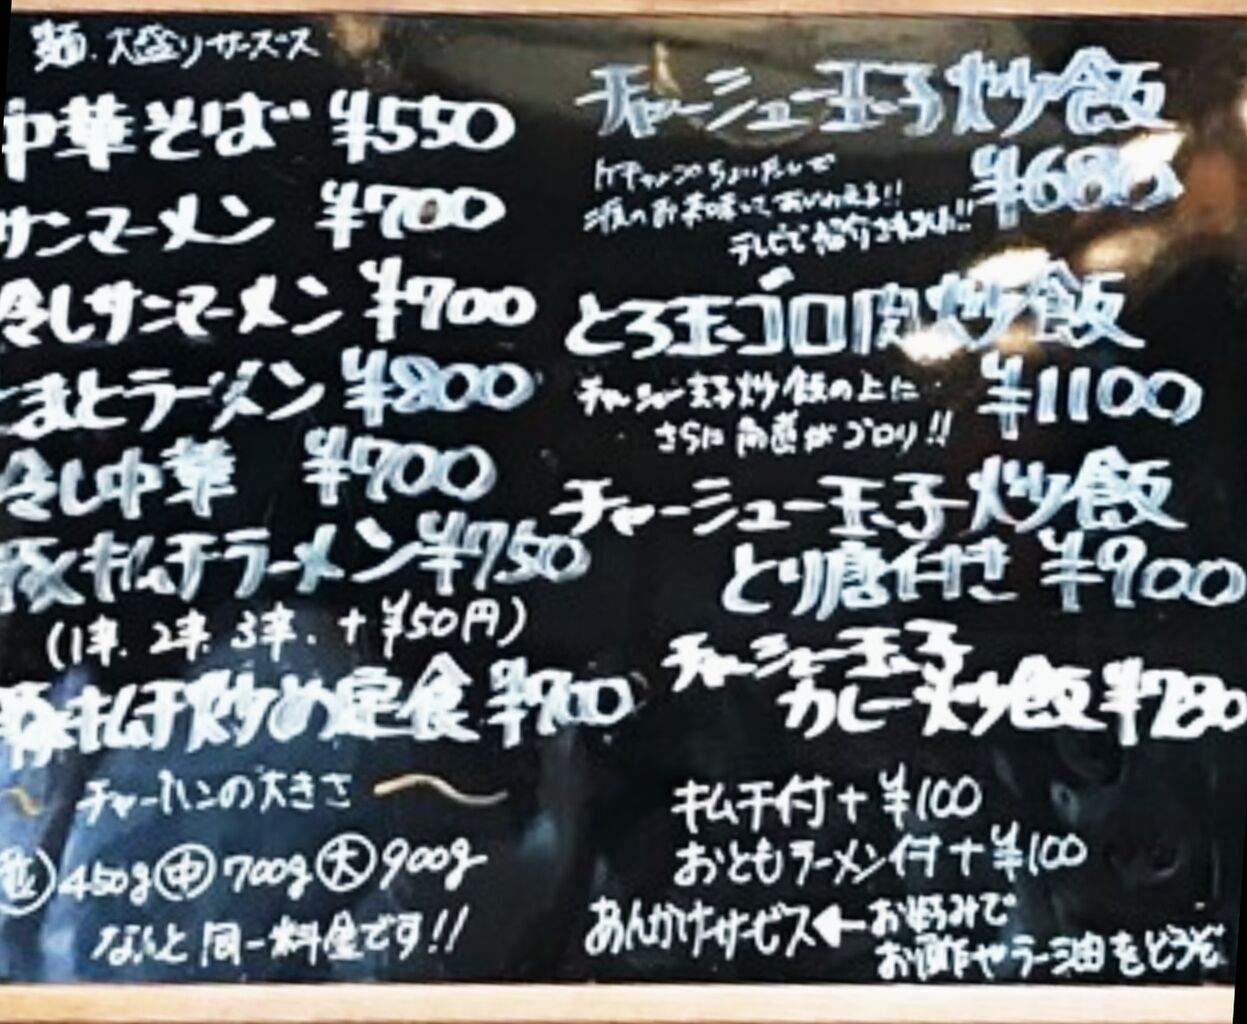 麺.大盛りサービス
中華そば ¥550
サンマーメン ¥700
冷しサンマーメン ¥700
とまとラーメン ¥800
冷し中華 ¥700
豚キムチラーメン ¥750
(1辛. 2辛. 3辛. +¥50円)
豚キムチ炒め定食 ¥900
チャーハンの大きさ
450g 中 700g 大 900g
なんと同一料金です!!
チャーシュー玉子炒飯
¥680
テレビで紹介されました!!
とろ玉ゴロ肉炒飯
チャーシュー玉子炒飯の上に ¥1100
さらに角煮がゴロリ!!
チャーシュー玉子炒飯
とり唐付き ¥900
チャーシュー玉子
カレー炒飯 ¥780
キムチ付+¥100
おともラーメン付+¥100
あんかけサービス←お好みで
お酢やラー油をどうぞ